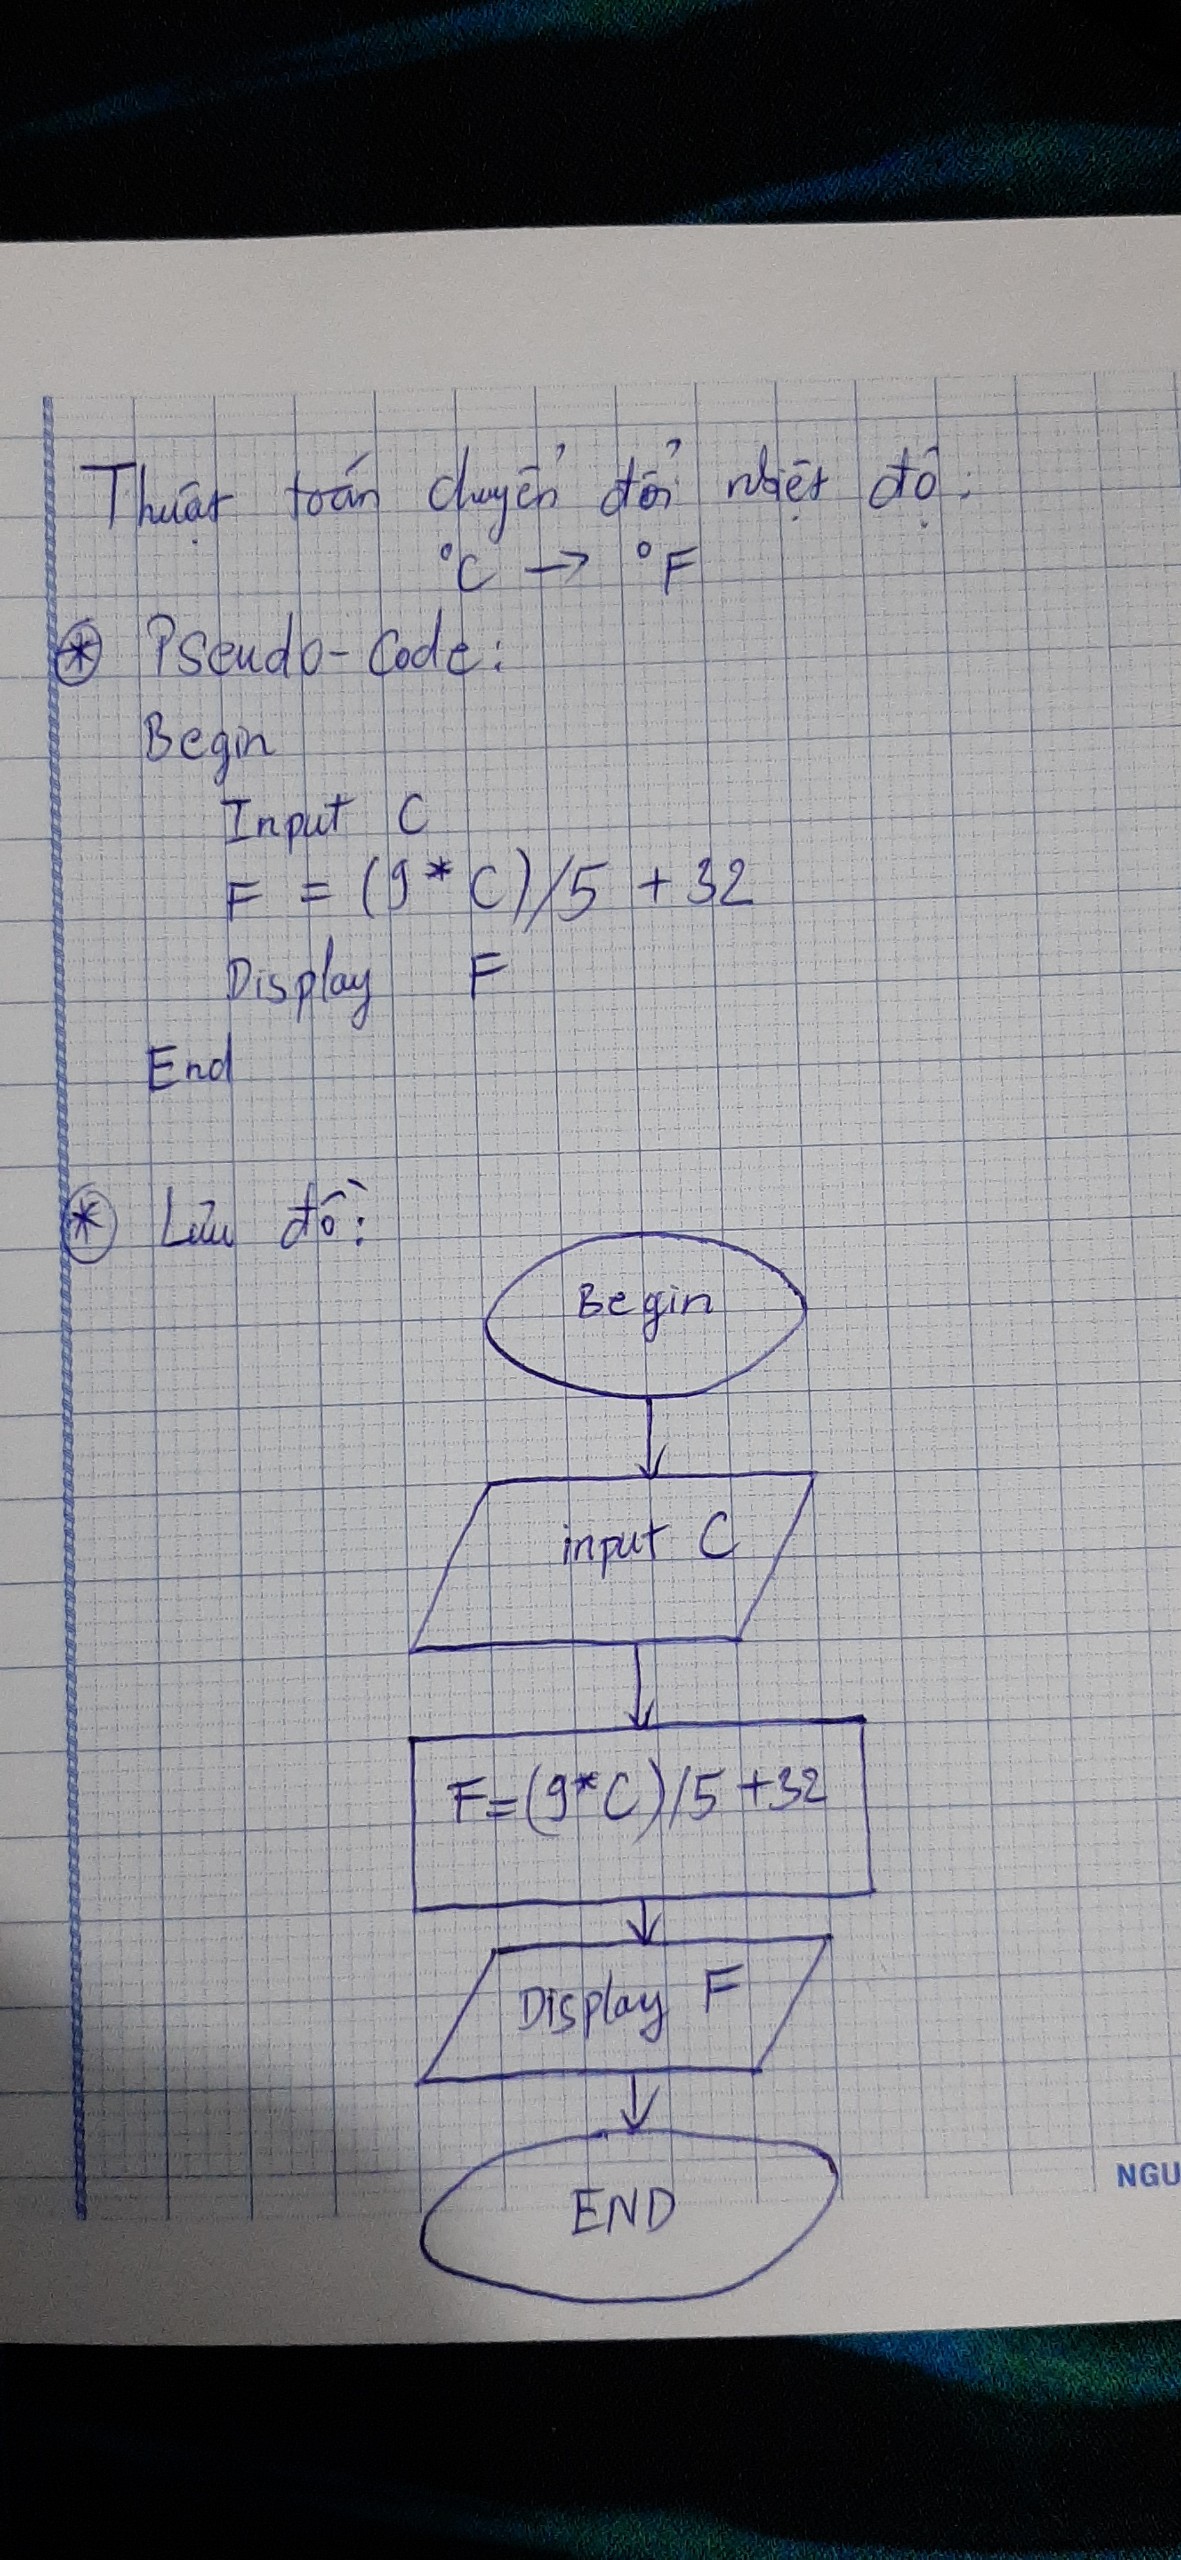 Thuật toán chuyển đổi nhiệt độ:
°C → °F
* Pseudo-Code:
Begin
Input C
F = (9*C)/5 + 32
Display F
End
* Lưu đồ:
Begin
input C
F=(9*C)/5+32
Display F
END
NGU